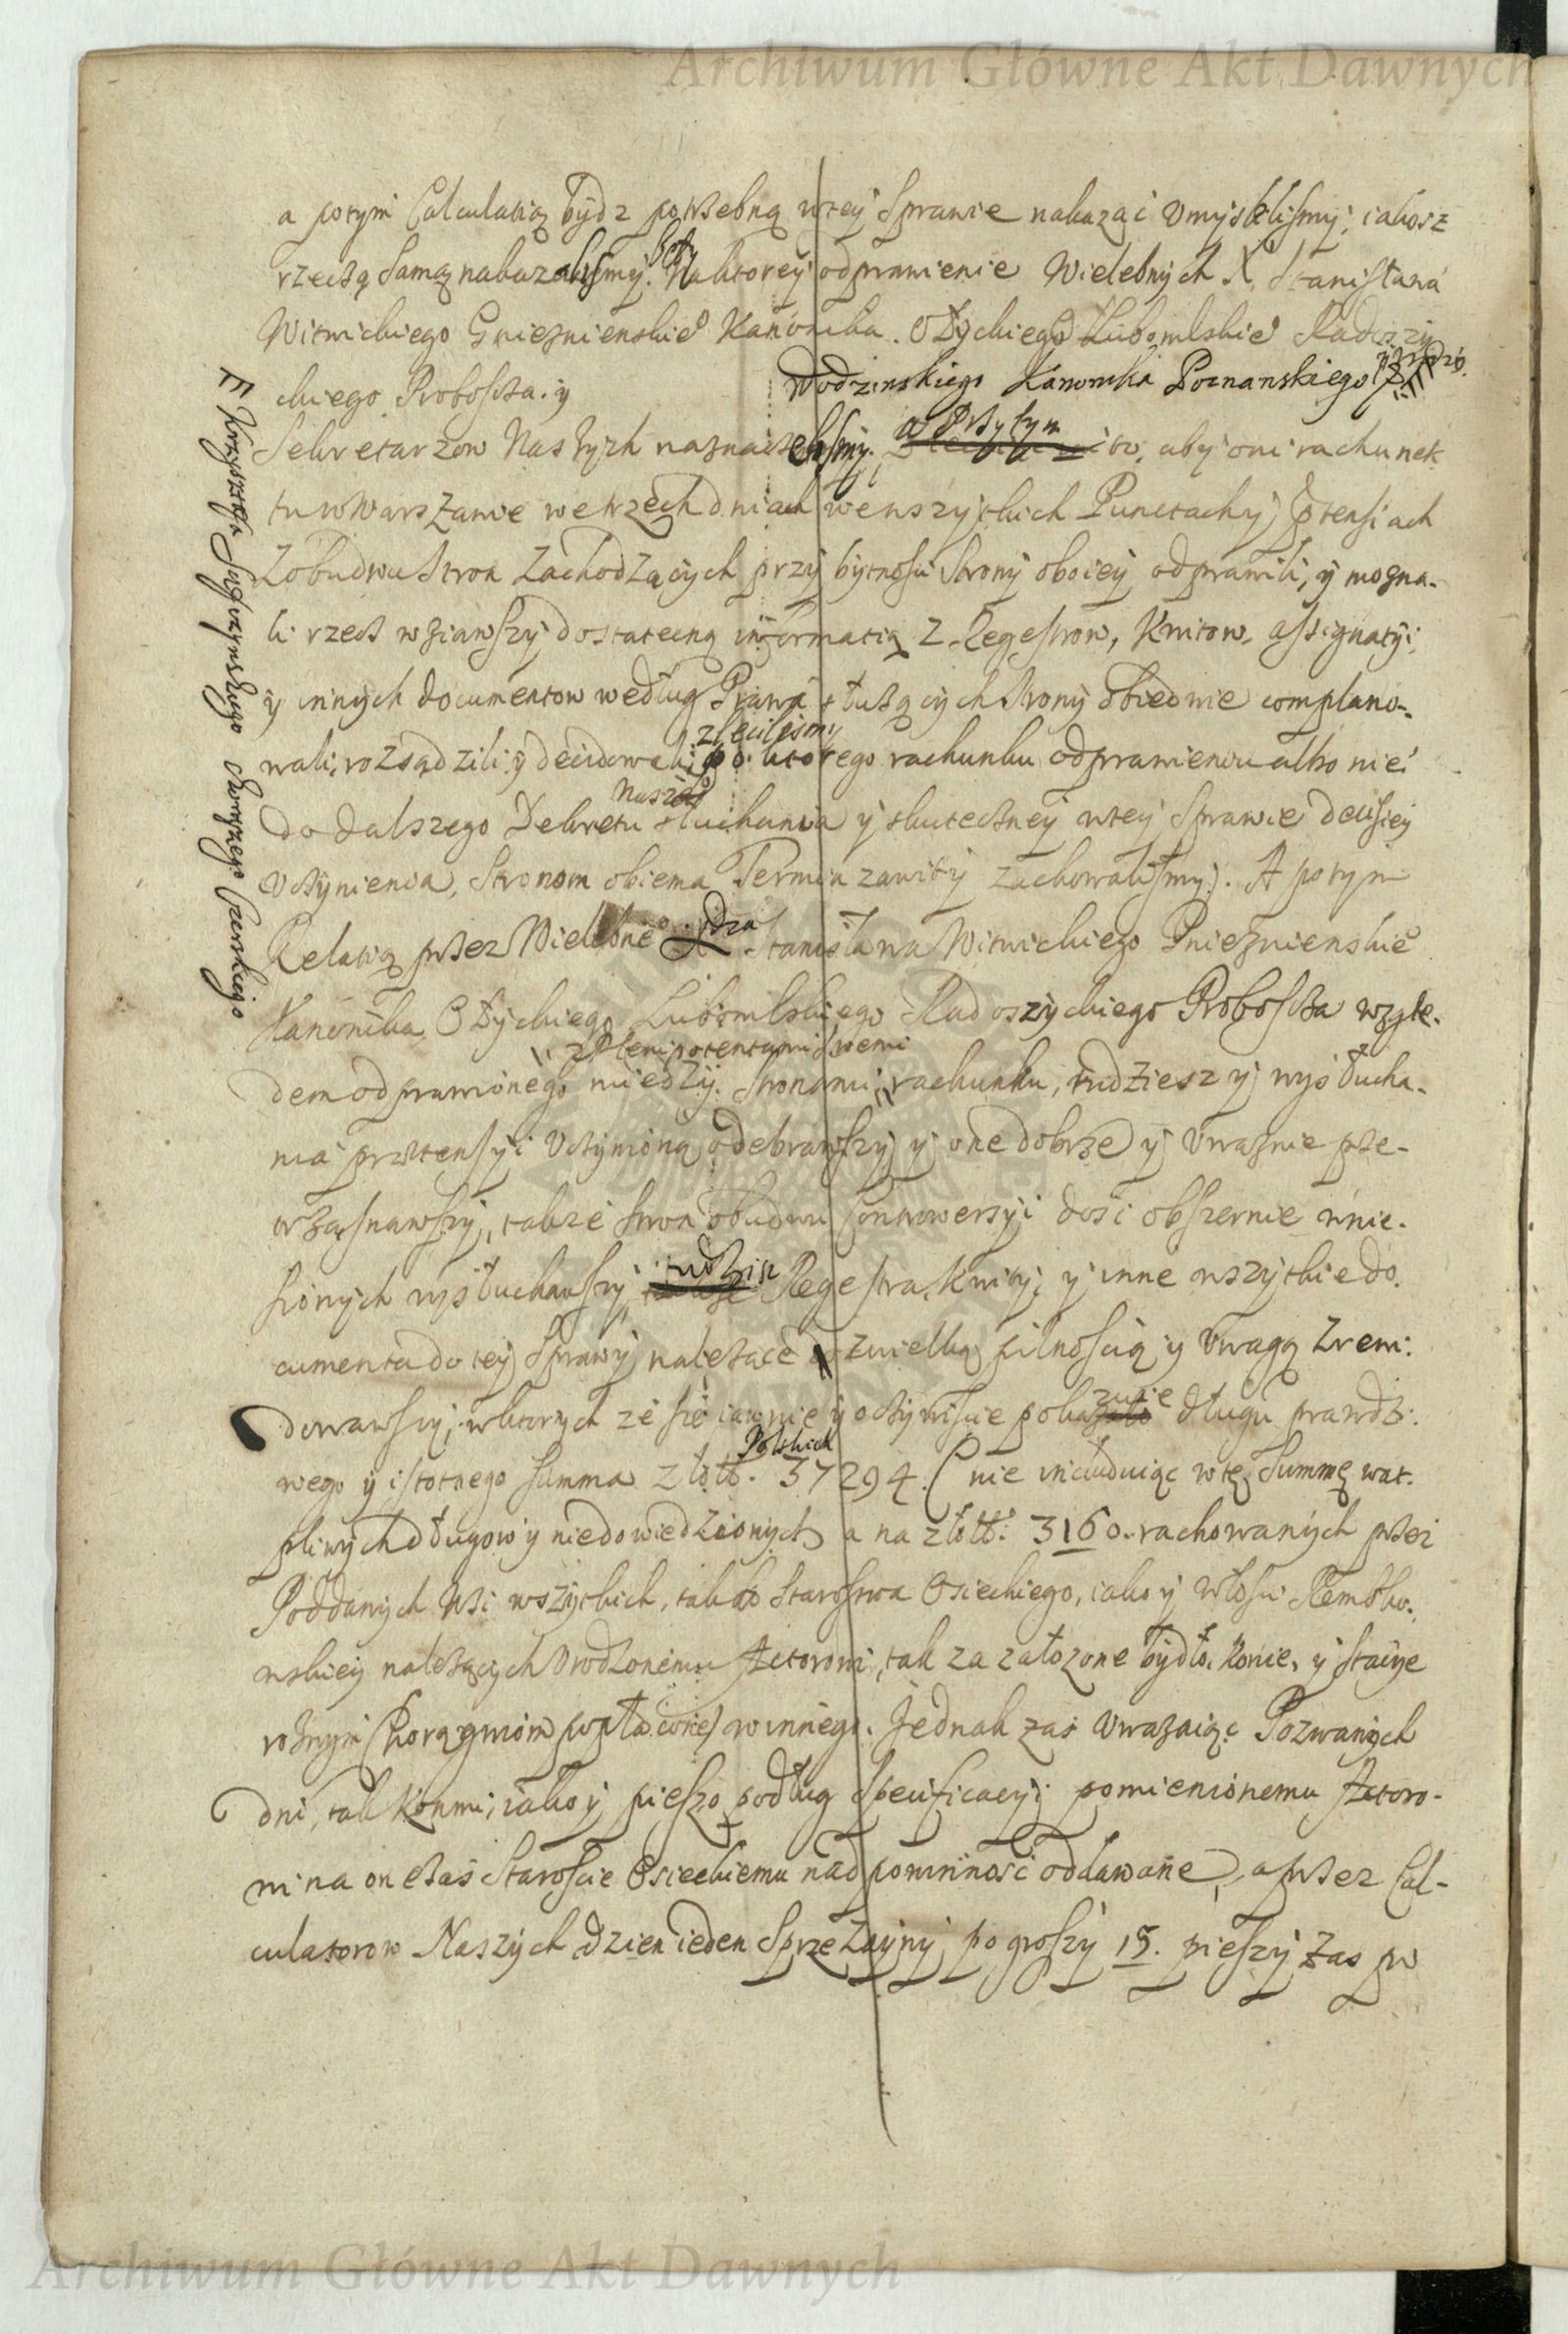 Archiwum Główne Akt Dawnych
a potym Calculatią bydz potrzebną wtey Sprawie nakazać Umyslilismy, iakosz
rzeczą Samą nakazalismy. Na ktorey odprawienie Wielebnych X. Stanisława
Witwickiego Gnieznienskieo Kanonika. Ołyckiego Lubomlskieo Radoszy
ckiego Proboscza. y Wodzinskiego Kanonika Poznanskiego
Sekretarzow Naszych naznaczelismy. a Przytym aby oni rachunek
tu w Warszawie we trzech dniach we wszytkich Punctach y ptensiach
Zobudwu Stron Zachodzących przy bytnosci Strony oboiey odprawili, y mozna
li rzecz wziąwszy dostateczną informatią z Regestrow, Kwitow, assignatyi,
y innych documentow według Prawa służących Strony obiedwie complano-
wali, rozsądzili y decidowali, zlecilismy po ktorego rachunku odprawieniu albo nie
do dalszego Dekretu Naszeo słuchania y skuteczney wtey Sprawie decisiey
Uczynienia, Stronom obiema Termin zawity zachowalismy. A potym
Relatią przez Wielebneo Xdza Stanisława Witwickiego Gnieznienskieo
Kanonika Ołyckiego Lubomlskiego Radoszyckiego Proboscza wzglę-
dem odprawionego miedzy Stronami z Plenipotentami Swemi rachunku, tudziesz y wysłucha-
nia prætensyi Uczynioną odebrawszy y one dobrze y Uwaznie prze-
wząsnąwszy, takze Stron obudwu Controwersyi dosć obszernie wnie-
sionych wysłuchawszy, tudzisz Regestra, Kwity, y inne wszytkie do
cumenta do tey Sprawy nalezące z wielką pilnoscią y Uwagą zrewi-
dowawszy, w ktorych ze się iawnie y oczywiscie pokazuie długu prawdzi-
wego y istotnego summa złott. Polskich 37294. (nie includuiąc w tę Summę wąt-
pliwych długow y niedowiedzionych a na złott. 3160. rachowanych) przez
Poddanych Wsi wszytkich, tak do Starostwa Osieckiego, iako y włosci
wskiey nalezących Urodzonemu Actorowi, tak za załozone bydło, konie, y stacye
roznym Chorągwiom popłacone) winnego. Jednak zas Uwazaiąc Pozwanych
dni, tak konmi, iako y pieszo podług Specificacyi pomienionemu Actoro-
wi na on czas Staroscie Osieckiemu nad powinnosć oddawane, a przez Cal-
culatorow Naszych dzien ieden Sprzężayny po groszy 15. pieszy zas po
Krzysztofa
Archiwum Główne Akt Dawnych